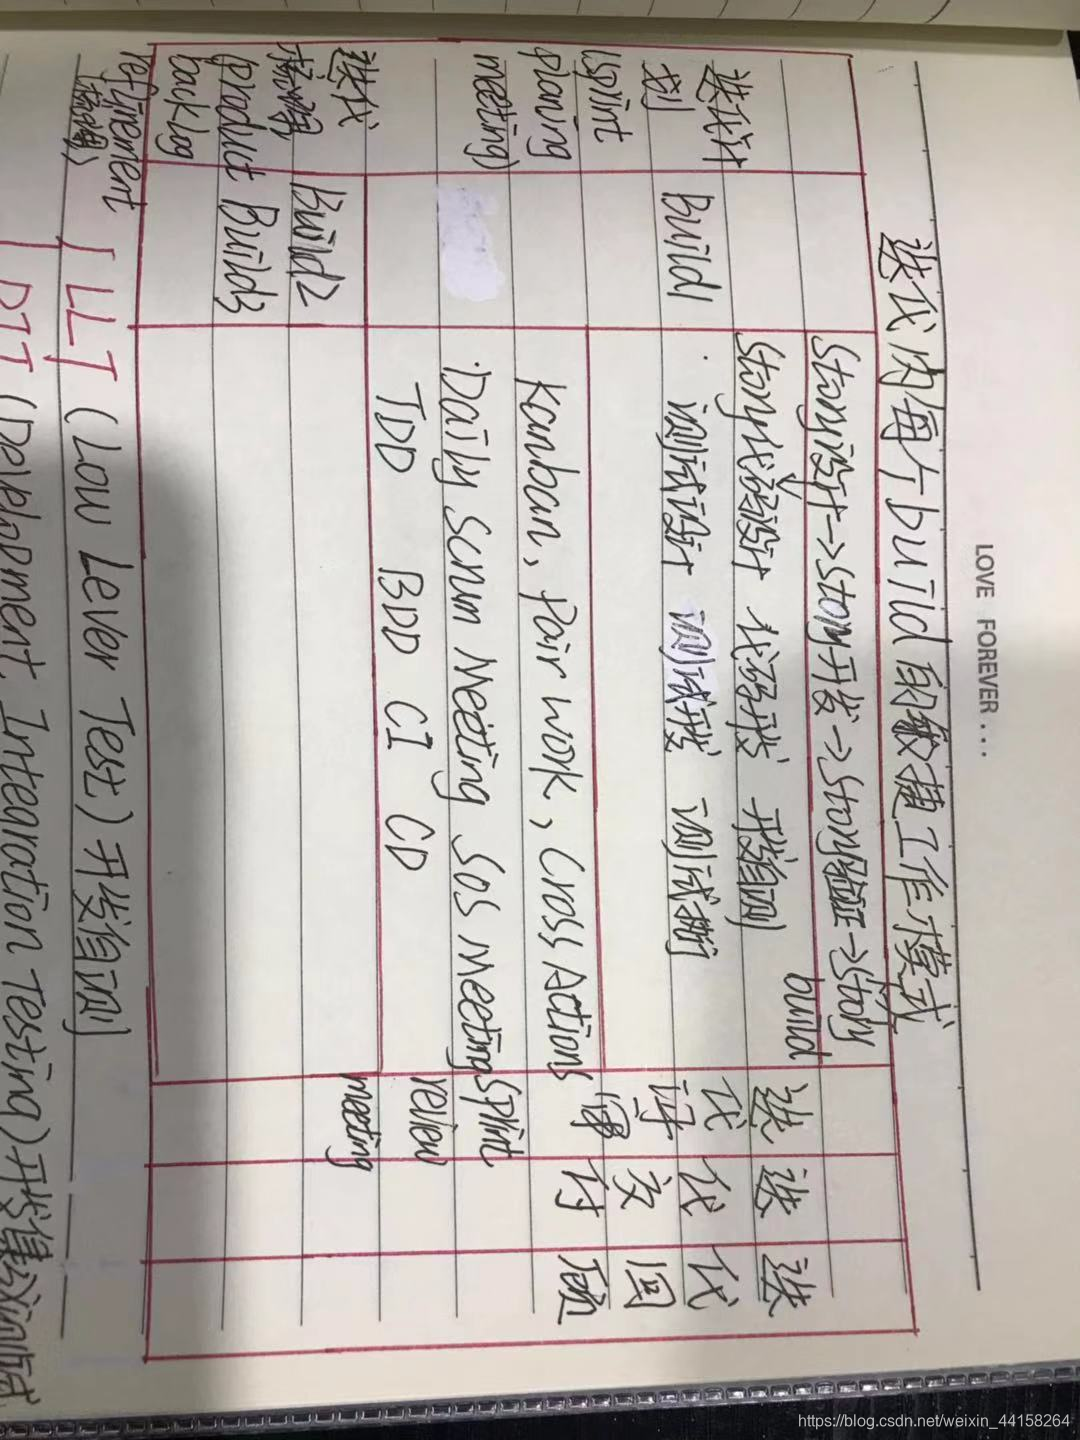 LOVE FOREVER...
迭代内每个build的敏捷工作模式
迭代计
划
(sprint
planing
meeting)
迭代
精确
(product
backlog
refinement
Build1
Build2
Build3
Story设计->Story开发->Story验证->Story
build
Story代码设计 代码开发 开发自测
测试设计 测试开发 测试执行
Kanban、Pair work、Cross Actions
·Daily Scrum Meeting SoS Meeting
TDD BDD CI CD
迭
代
评
审
Sprint
review
meeting
迭
代
交
付
迭
代
回
顾
LLT (Low Lever Test) 开发自测
(Development Integration Testing)
https://blog.csdn.net/weixin_44158264